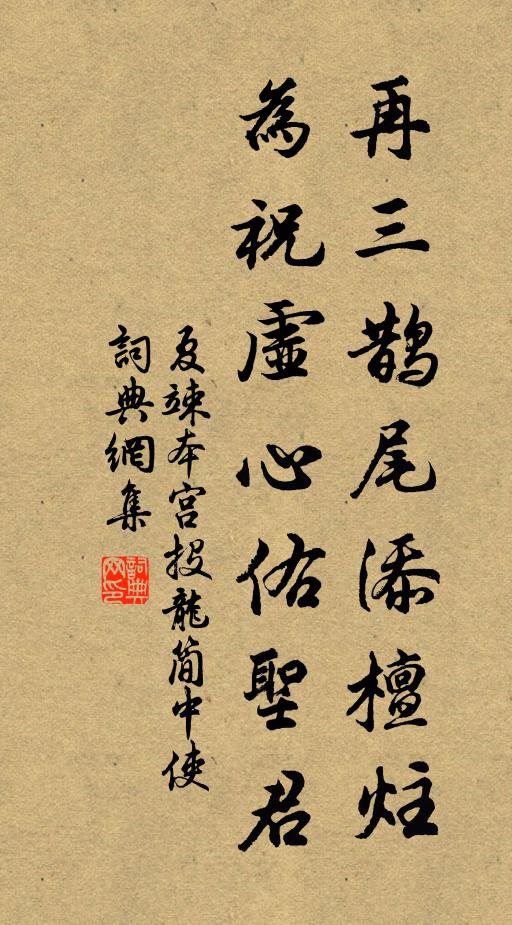 再三鵲尾添檀炷
為祝虛心佑聖君
夏竦本宮投龍簡中使
詞典網集
詞典網印